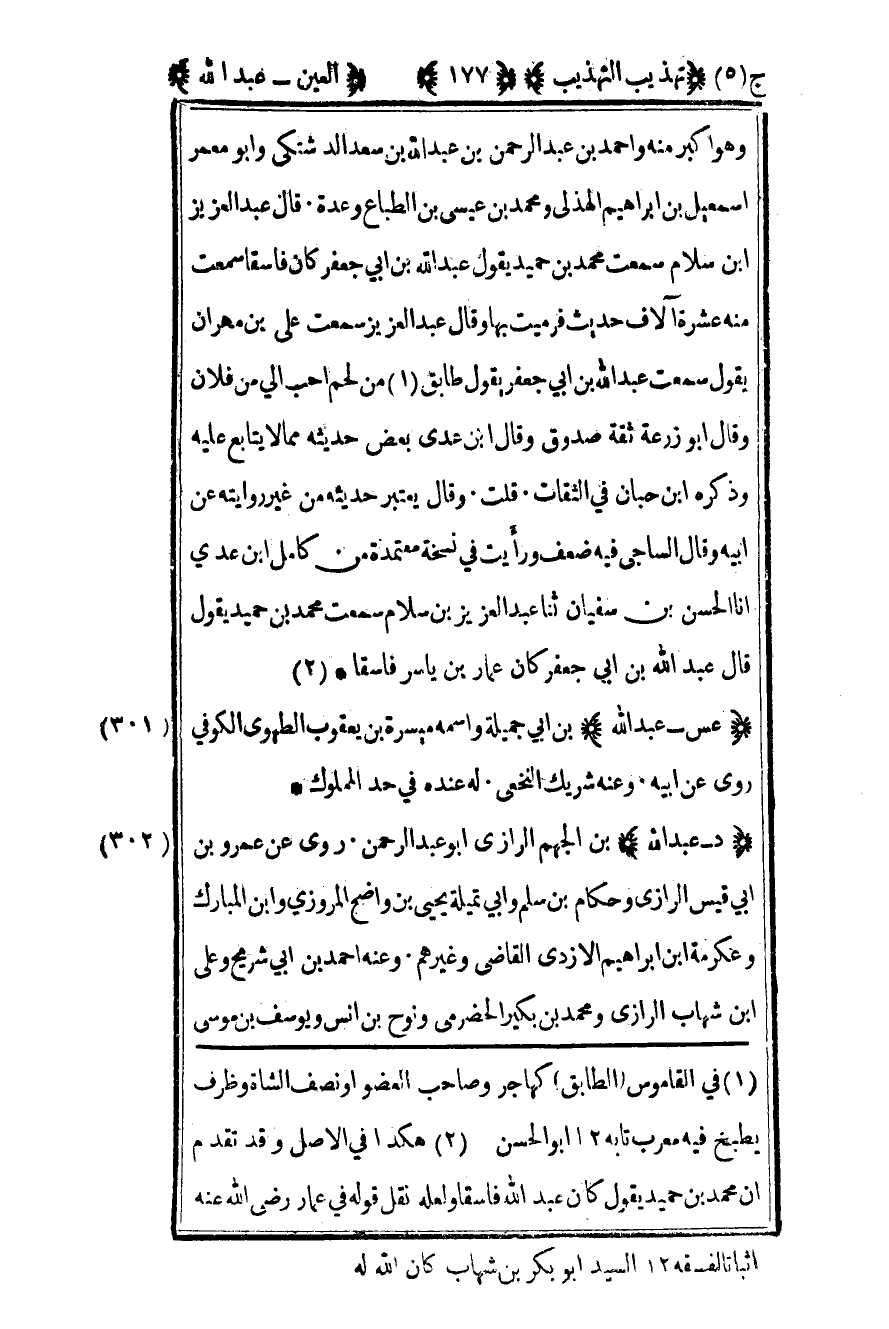 ج(٥) ﴿تهذيب التهذيب﴾ ﴿١٧٧﴾ ﴿العين ــ عبد الله﴾
وهو اكبر منه واحمد بن عبد الرحمن بن عبدالله بن سعد الدشتكى وابو معمر
اسمعيل بن ابراهيم الهذلى ومحمد بن عيسى بن الطباع وعدة ٠ قال عبد العزيز
ابن سلام سمعت محمد بن حميد يقول عبدالله بن ابي جعفر كان فاسقا سمعت
منه عشرة آلاف حديث فرميت بها وقال عبد العزيز سمعت على بن مهران
يقول سمعت عبدالله بن ابي جعفر يقول طابق (١) من لحم احب الي من فلان
وقال ابو زرعة ثقة صدوق وقال ابن عدى بعض حديثه ممالا يتابع عليه
وذكره ابن حبان في الثقات ٠ قلت ٠ وقال يعتبر حديثه من غير روايته عن
ابيه وقال الساجى فيه ضعف ورأيت في نسخة معتمدة من كامل ابن عدي
انا الحسن بن سفيان ثنا عبد العزيز بن سلام سمعت محمد بن حميد يقول
قال عبد الله بن ابي جعفر كان عمار بن ياسر فاسقا * (٢)
﴿ عس ــ عبدالله ﴾ بن ابي جميلة واسمه ميسرة بن يعقوب الطهوى الكوفي (٣٠١)
روى عن ابيه ٠ وعنه شريك النخعى ٠ له عنده في حد المملوك *
﴿ د ــ عبدالله ﴾ بن الجهم الرازى ابو عبد الرحمن ٠ روى عن عمرو بن (٣٠٢)
ابي قيس الرازى وحكام بن سلم وابي تميلة يحيى بن واضح المروزي وابن المبارك
وعكرمة ابن ابراهيم الازدى القاضى وغيرهم ٠ وعنه احمد بن ابي شريح وعلى
ابن شهاب الرازى ومحمد بن بكير الحضرمى ونوح بن انس ويوسف بن موسى
(١) في القاموس (الطابق) كهاجر وصاحب العضو او نصف الشاة وظرف
يطبخ فيه معرب تابه ١٢ ابو الحسن (٢) هكذا في الاصل وقد تقدم
ان محمد بن حميد يقول كان عبد الله فاسقا ولعله نقل قوله في عمار رضى الله عنه
اثباتا لفسقه ١٢ السيد ابو بكر بن شهاب كان الله له